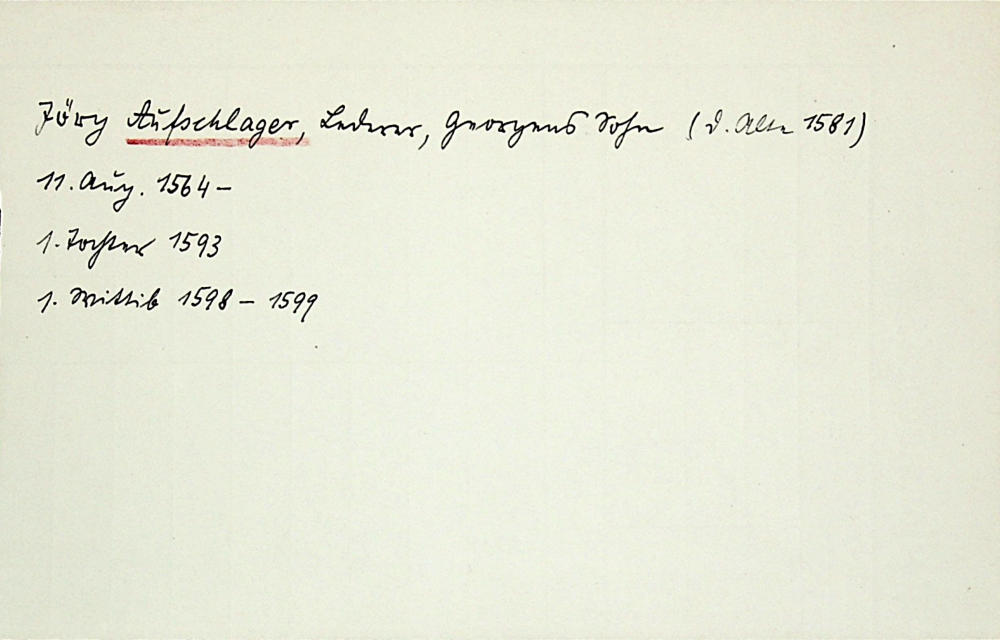 Jörg Aufschlager, Lederer, Georgens Sohn (d. Alte 1581)
11. Aug. 1564 –
1. Tochter 1593
1. Wittib 1598 – 1599